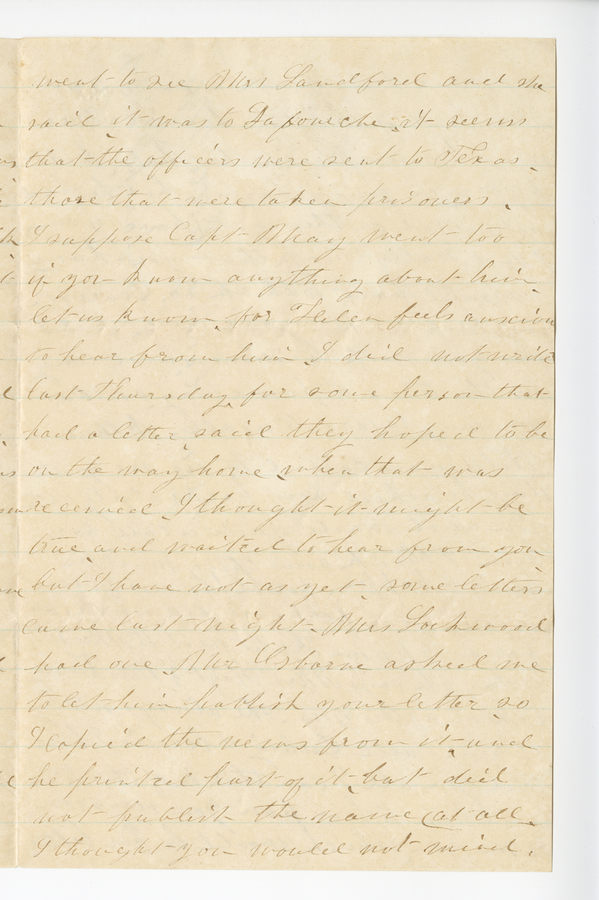 went to see Mrs Landford and she
said it was to Lafourche, it seems
that the officers were sent to Texas,
those that were taken prisoners.
I suppose Capt Khay went too
if you know anything about him
let us know, for Helen feels anxious
to hear from him. I did not write
last Thursday, for some person that
had a letter, said they hoped to be
on the way home, when that was
receivied. I thought it might be
true, and waited to hear from you
but I have not as yet, some letters
came last night. Mrs Lockwood
had one, Mr Osborne asked me
to let him publish your letter, so
I copied the news from it, and
he printed part of it, but did
not publish the name (at all,
I thought you would not mind.